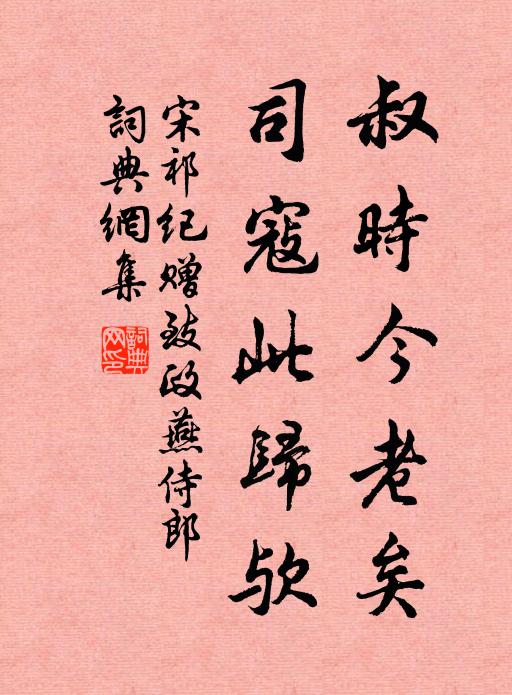 叔時今老矣
司寇此歸欤
宋祁纪赠致政燕侍郎
詞典網集
詞典网印